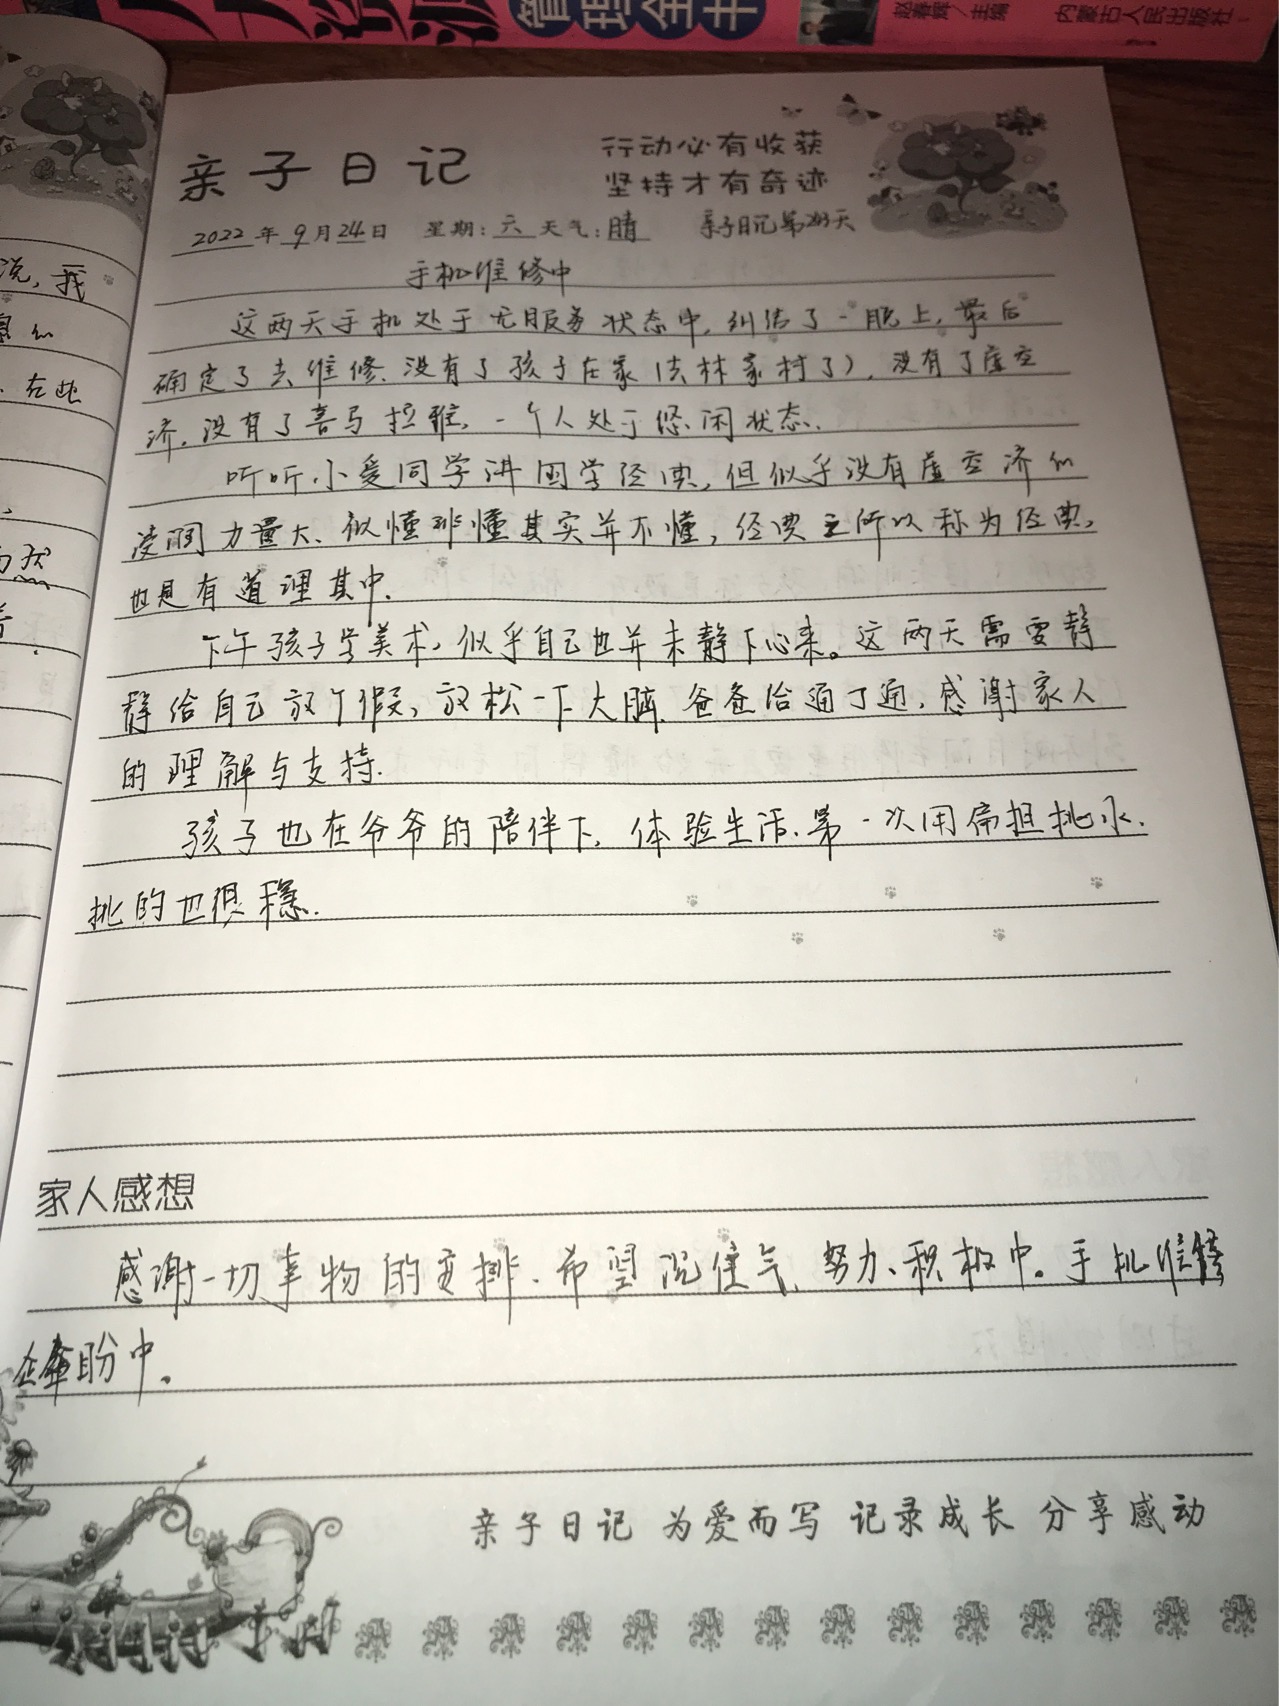 管理全书
赵春辉/主编
内蒙古人民出版社
说,我
在此
亲子日记
行动必有收获
坚持才有奇迹
2022年9月24日 星期:六 天气:晴 亲子日记第 天
手机维修中
这两天手机处于无服务状态中,纠结了一晚上,最后
确定了去维修.没有了孩子在家(去林家村了),没有了虚空
济,没有了喜马拉雅,一个人处于悠闲状态.
听听小爱同学讲国学经典,但似乎没有虚空济的
浸润力量大、似懂非懂其实并不懂,经典之所以称为经典,
也是有道理其中.
下午孩子学美术,似乎自己也并未静下心来。这两天需要静
静给自己放个假,放松一下大脑.爸爸给通了通,感谢家人
的理解与支持.
孩子也在爷爷的陪伴下,体验生活.第一次用扁担挑水.
挑的也很稳.
家人感想
感谢一切事物的安排.希望沉住气、努力、积极中。手机维修
盼中。
亲子日记 为爱而写 记录成长 分享感动